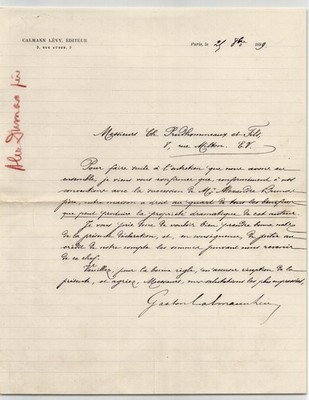 CALMANN LÉVY, ÉDITEUR
3, RUE AUBER, 3
Paris, le 25 1889.
Alex Dumas père
Messieurs Ch. Prudhommeaux et Fils
8, rue Milton. E.V.
Pour faire suite à l'entretien que nous avons eu
ensemble, je viens vous confirmer que, conformément à nos
conventions avec la succession de Mr Alexandre Dumas
père, notre maison a droit au quart de tous les bénéfices
que peut produire la propriété dramatique de cet auteur.
Je vous prie donc de vouloir bien prendre bonne note
de la présente déclaration, et, en conséquence, de porter au
crédit de notre compte les sommes pouvant nous revenir
de ce chef.
Veuillez, pour la bonne règle, m'accuser réception de la
présente, et agréez, Messieurs, mes salutations les plus empressées.